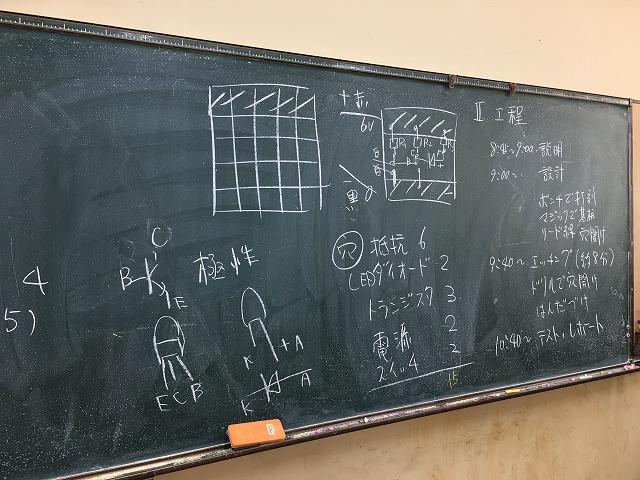 4
5)
C
B
E
極性
E C B
K +A
K A
+赤
6V
R1 R2
黒
穴 抵抗 6
LEDダイオード-2
トランジスタ 3
電源 2
スイッチ 2
15
Ⅱ 工程
8:45~9:00 説明
9:00~ 設計
ポンチで打刻
マジックで基板
リード線 穴開け
9:40~ エッチング(約8分)
ドリルで穴開け
はんだづけ
10:40~ テスト,レポート